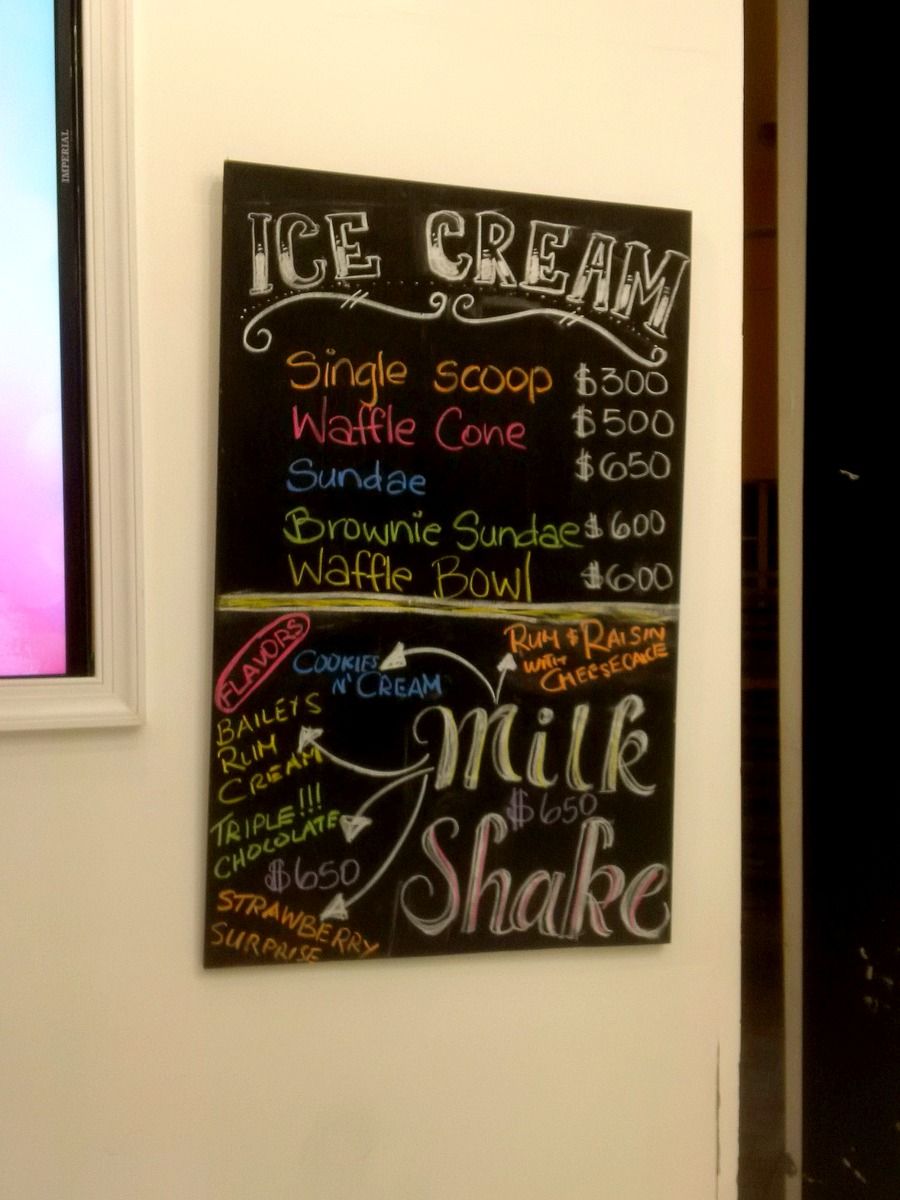 IMPERIAL
ICE CREAM
Single scoop $300
Waffle Cone $500
Sundae $650
Brownie Sundae $600
Waffle Bowl $600
FLAVORS
COOKIES
N' CREAM
RUM & RAISIN
WITH
CHEESECAKE
BAILEYS
RUM
CREAM
Milk
$650
Shake
TRIPLE!!!
CHOCOLATE
$650
STRAWBERRY
SURPRISE